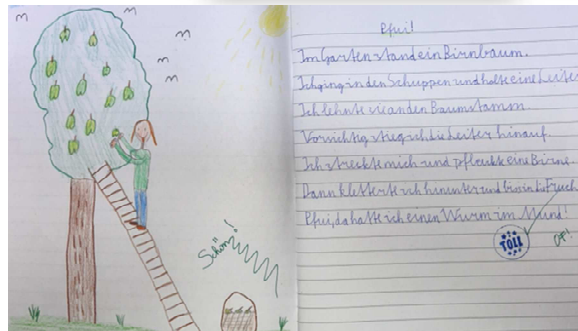 Pfui!
Im Garten stand ein Birnbaum.
Ich ging in den Schuppen und holte eine Leiter
Ich lehnte sie an den Baumstamm.
Vorsichtig stieg ich die Leiter hinauf.
Ich streckte mich und pflückte eine Birne.
Dann kletterte ich hinunter und biss in die Fruch
Pfui, da hatte ich einen Wurm im Mund!
TOLL
Schön!